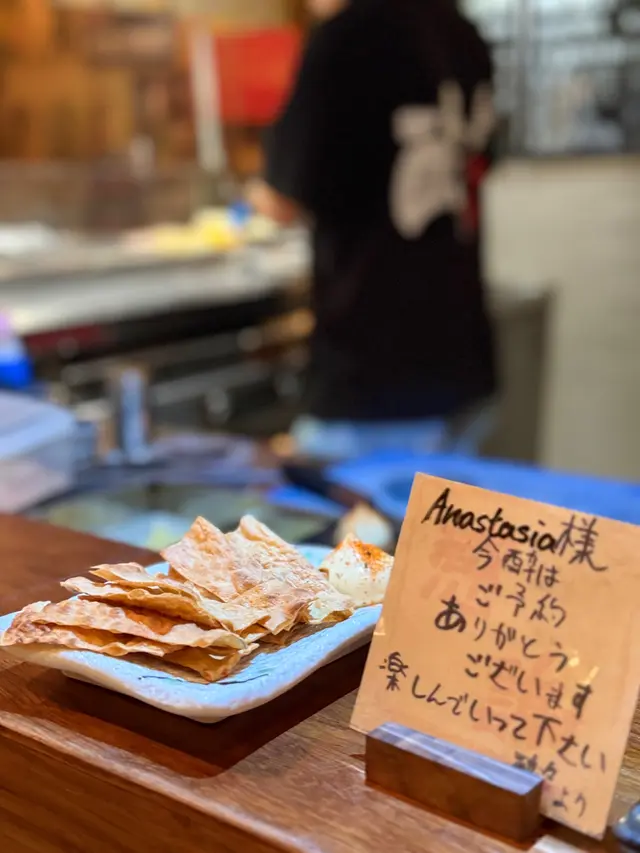 Anastasia様
今酔は
ご予約
ありがとう
ございます
楽しんでいって下さい
より